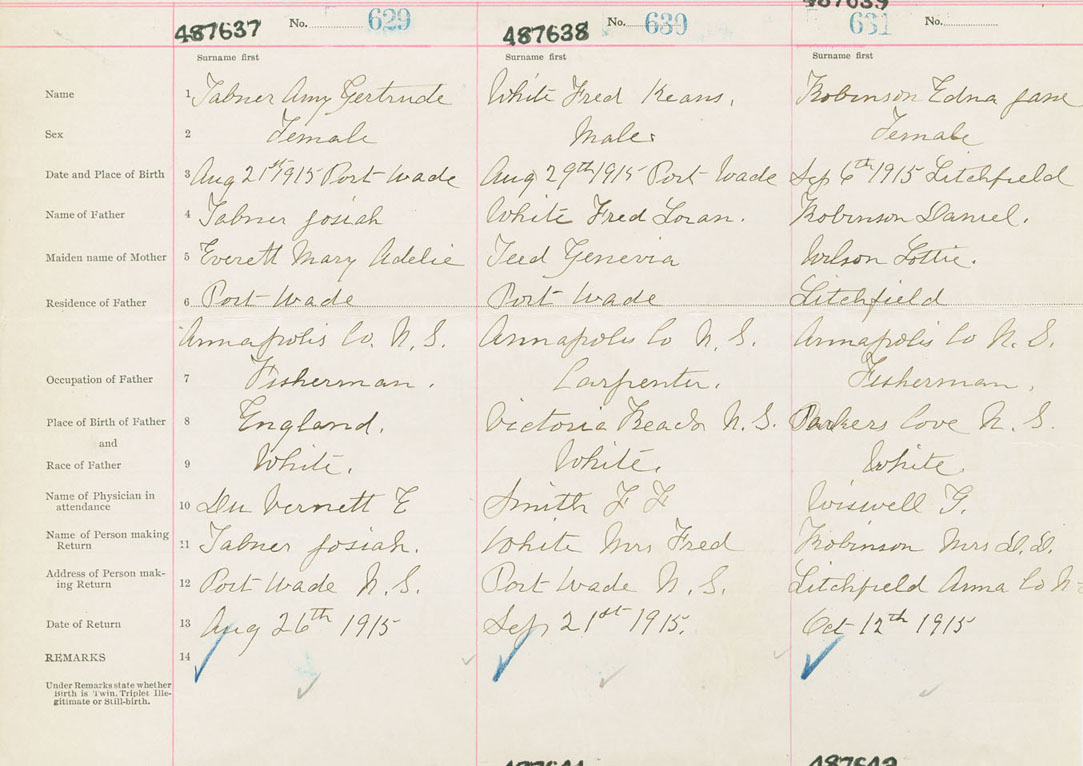 487637 No. 629 487638 No. 630 487639 631 No.
Surname first Surname first Surname first
Name 1 Tabner Amy Gertrude White Fred Keans. Robinson Edna Jane
Sex 2 Female Male Female
Date and Place of Birth 3 Aug 21st 1915 Port Wade Aug 29th 1915 Port Wade Sep 6th 1915 Litchfield
Name of Father 4 Tabner Josiah White Fred Loran. Robinson Daniel.
Maiden name of Mother 5 Everett Mary Adelie Teed Genevia Wilson Lottie.
Residence of Father 6 Port Wade Port Wade Litchfield
Annapolis Co. N.S. Annapolis Co N.S. Annapolis Co N.S.
Occupation of Father 7 Fisherman. Carpenter. Fisherman.
Place of Birth of Father 8 England. Victoria Beach N.S. Parkers Cove N.S.
and
Race of Father 9 White. White. White.
Name of Physician in
attendance 10 Du Vernett E Smith F F Wiswell G.
Name of Person making
Return 11 Tabner Josiah. White Mrs Fred Robinson Mrs D.D.
Address of Person mak-
ing Return 12 Port Wade N.S. Port Wade N.S. Litchfield Anna Co N.
Date of Return 13 Aug 26th 1915 Sep 21st 1915. Oct 12th 1915
REMARKS 14
Under Remarks state whether
Birth is Twin, Triplet Ille-
gitimate or Still-birth.